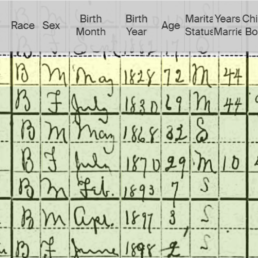 Race Sex Birth Month Birth Year Age Marita Status Years Marrie Chi Bo
B M May 1828 72 M 44
B F July 1830 69 M 44
B M May 1868 32 S
B F July 1870 29 M 10
B M Feb. 1893 7 S
B M Apr. 1897 3 S
B F June 1898 2 S